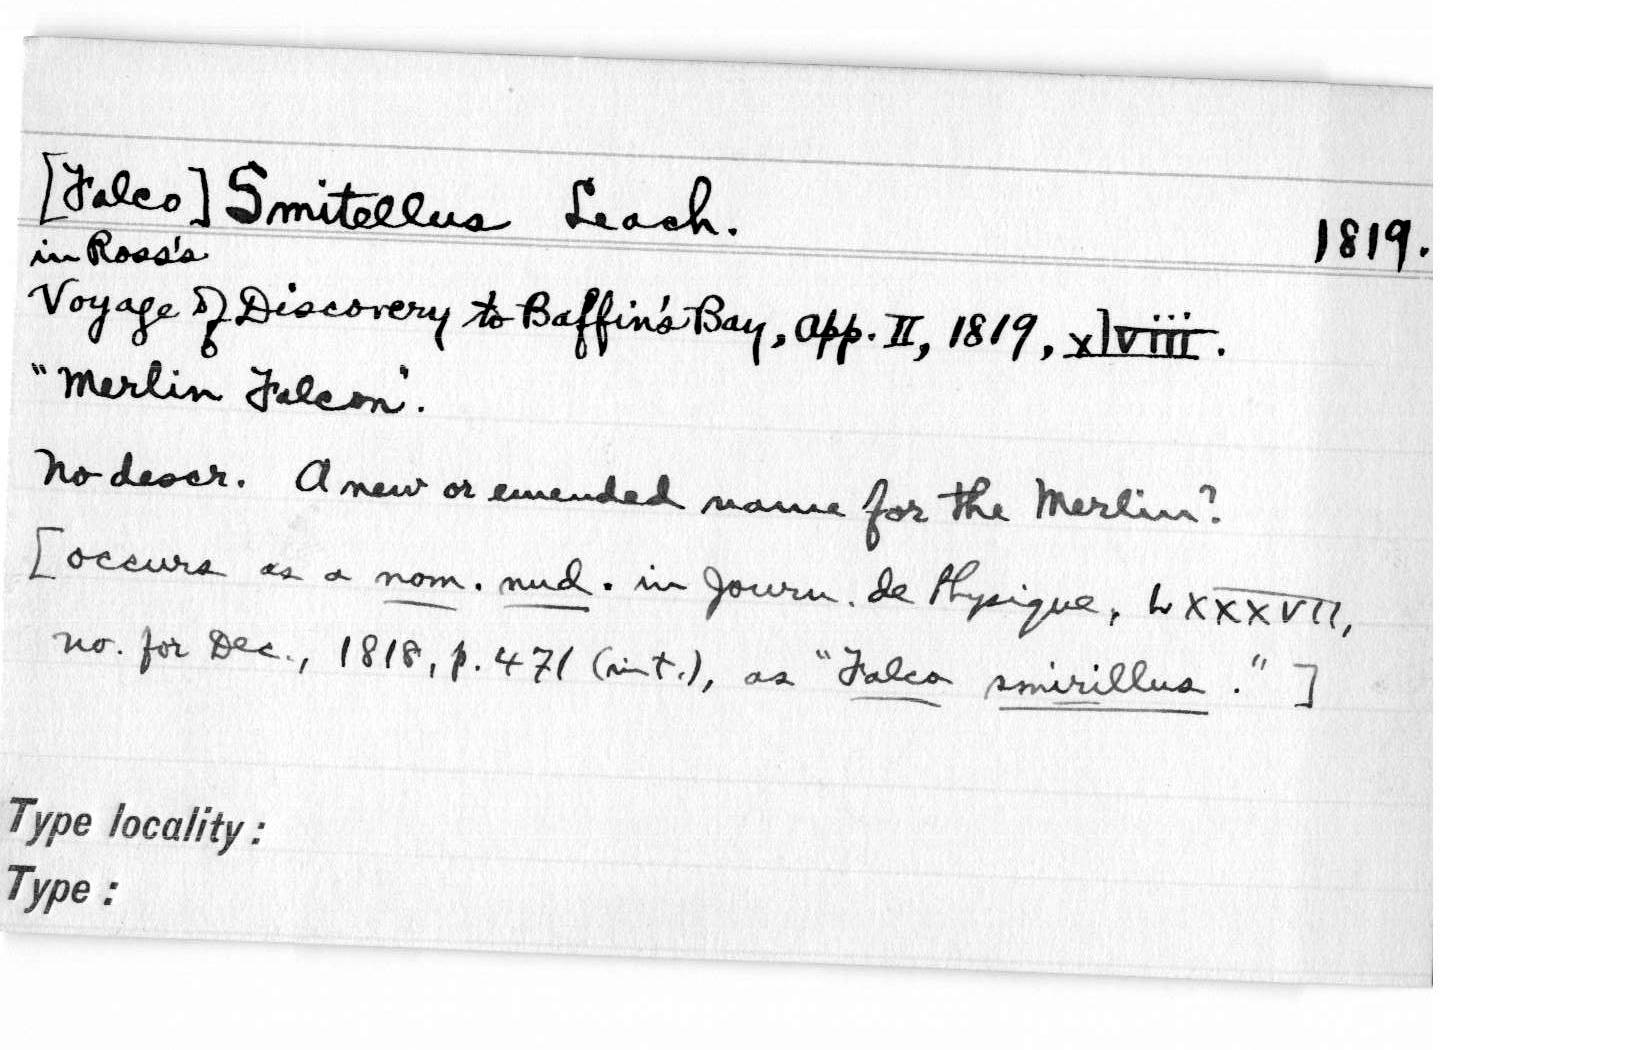 [Falco] Smitellus Leach. 1819.
in Ross's
Voyage of Discovery to Baffin's Bay, App. II, 1819, xlviii.
"Merlin Falcon".
No descr. A new or emended name for the Merlin?
[occurs as a nom. nud. in Journ. de Physique, LXXXVII,
no. for Dec., 1818, p. 471 (int.), as "Falco smirillus."]
Type locality:
Type: